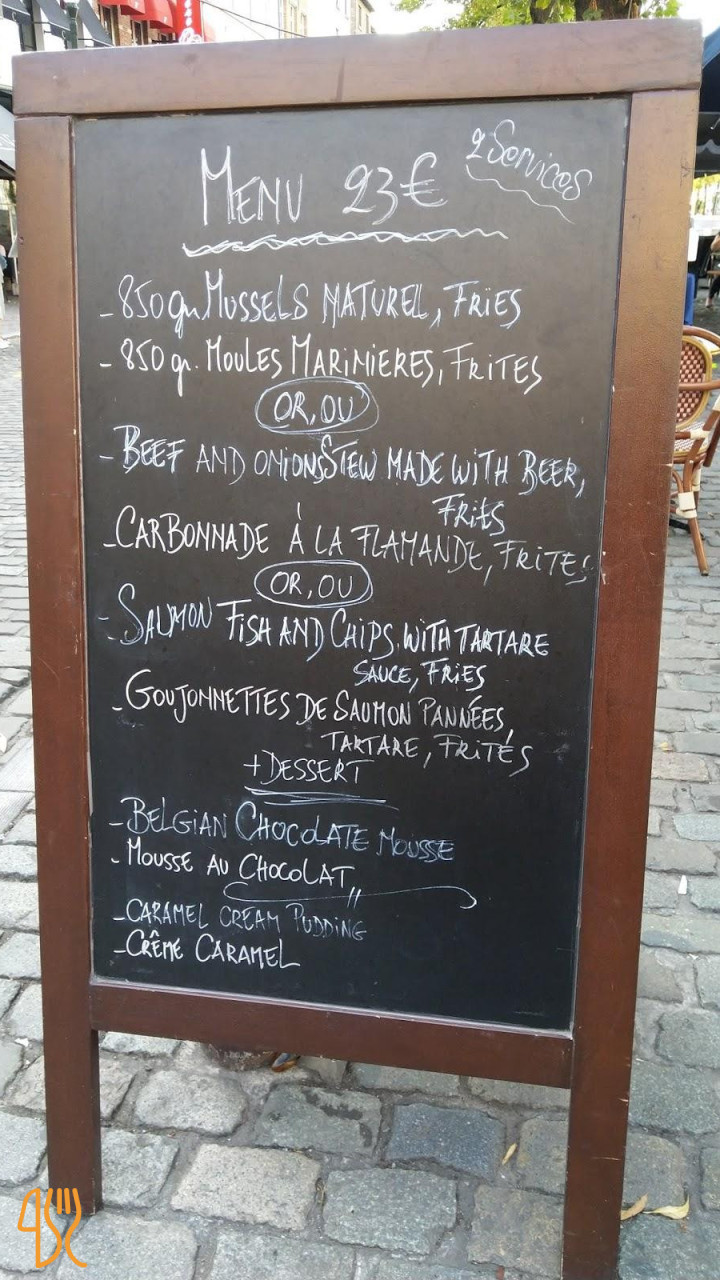 MENU 23€ 2 Services
- 850 gr. MUSSELS NATUREL, FRIES
- 850 gr. MOULES MARINIERES, FRITES
OR, OU
- BEEF AND ONIONS STEW MADE WITH BEER,
FRIES
- CARBONNADE À LA FLAMANDE, FRITES
OR, OU
- SALMON FISH AND CHIPS WITH TARTARE
SAUCE, FRIES
- GOUJONNETTES DE SAUMON PANNÉES,
TARTARE, FRITES
+ DESSERT
- BELGIAN CHOCOLATE MOUSSE
- MOUSSE AU CHOCOLAT
- CARAMEL CREAM PUDDING
- CRÊME CARAMEL